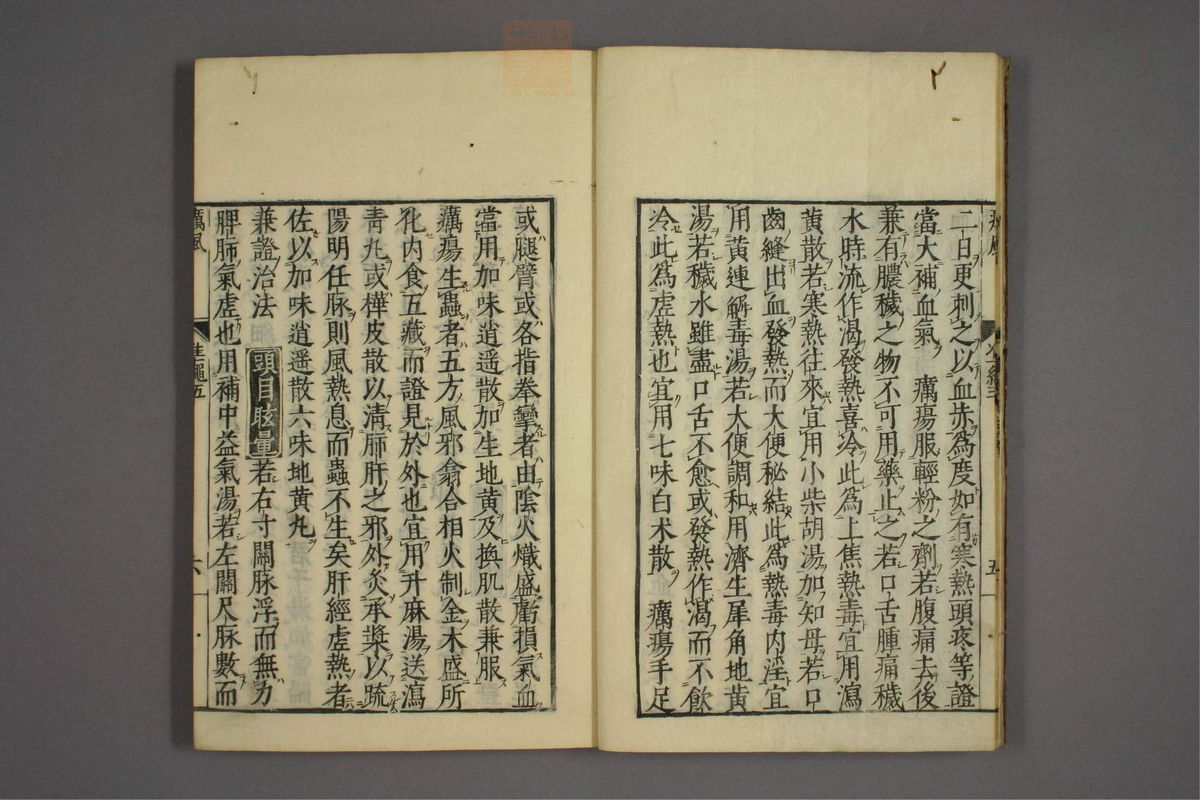 二日更刺之以血赤爲度如有寒熱頭疼等證
當大補血氣　癘瘍服輕粉之劑若腹痛去後
兼有膿穢之物不可用藥止之若口舌腫痛穢
水時流作渴發熱喜冷此爲上焦熱毒宜用瀉
黄散若寒熱往來宜用小柴胡湯加知母若口
齒縫出血發熱而大便秘結此爲熱毒内淫宜
用黄連解毒湯若大便調和用濟生犀角地黄
湯若穢水雖盡口舌不愈或發熱作渴而不飲
冷此爲虚熱也宜用七味白术散　癘瘍手足
五
或腿臂或各指拳攣者由陰火熾盛虧損氣血
當用加味逍遥散加生地黄及換肌散兼服
癘瘍生蟲者五方風邪翕合相火制金木盛所
化内食五藏而證見於外也宜用升麻湯送瀉
青丸或樺皮散以清肺肝之邪外灸承漿以疏
陽明任脉則風熱息而蟲不生矣肝經虚熱者
佐以加味逍遥散六味地黄丸
兼證治法　頭目眩暈若右寸關脉浮而無力
脾肺氣虚也用補中益氣湯若左關尺脉數而
癘風
六